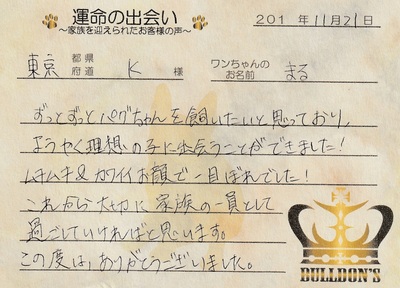 運命の出会い
～家族を迎えられたお客様の声～
201 年11月21日
東京 都県府道 K 様
ワンちゃんのお名前 まる
ずっとずっとパグちゃんを飼いたいと思っており、
ようやく理想の子に出会うことができました!
ムチムチ&カワイイお顔で一目ぼれでした!
これから大切に家族の一員として
過ごしていければと思います。
この度は、ありがとうございました。
BULLDON'S